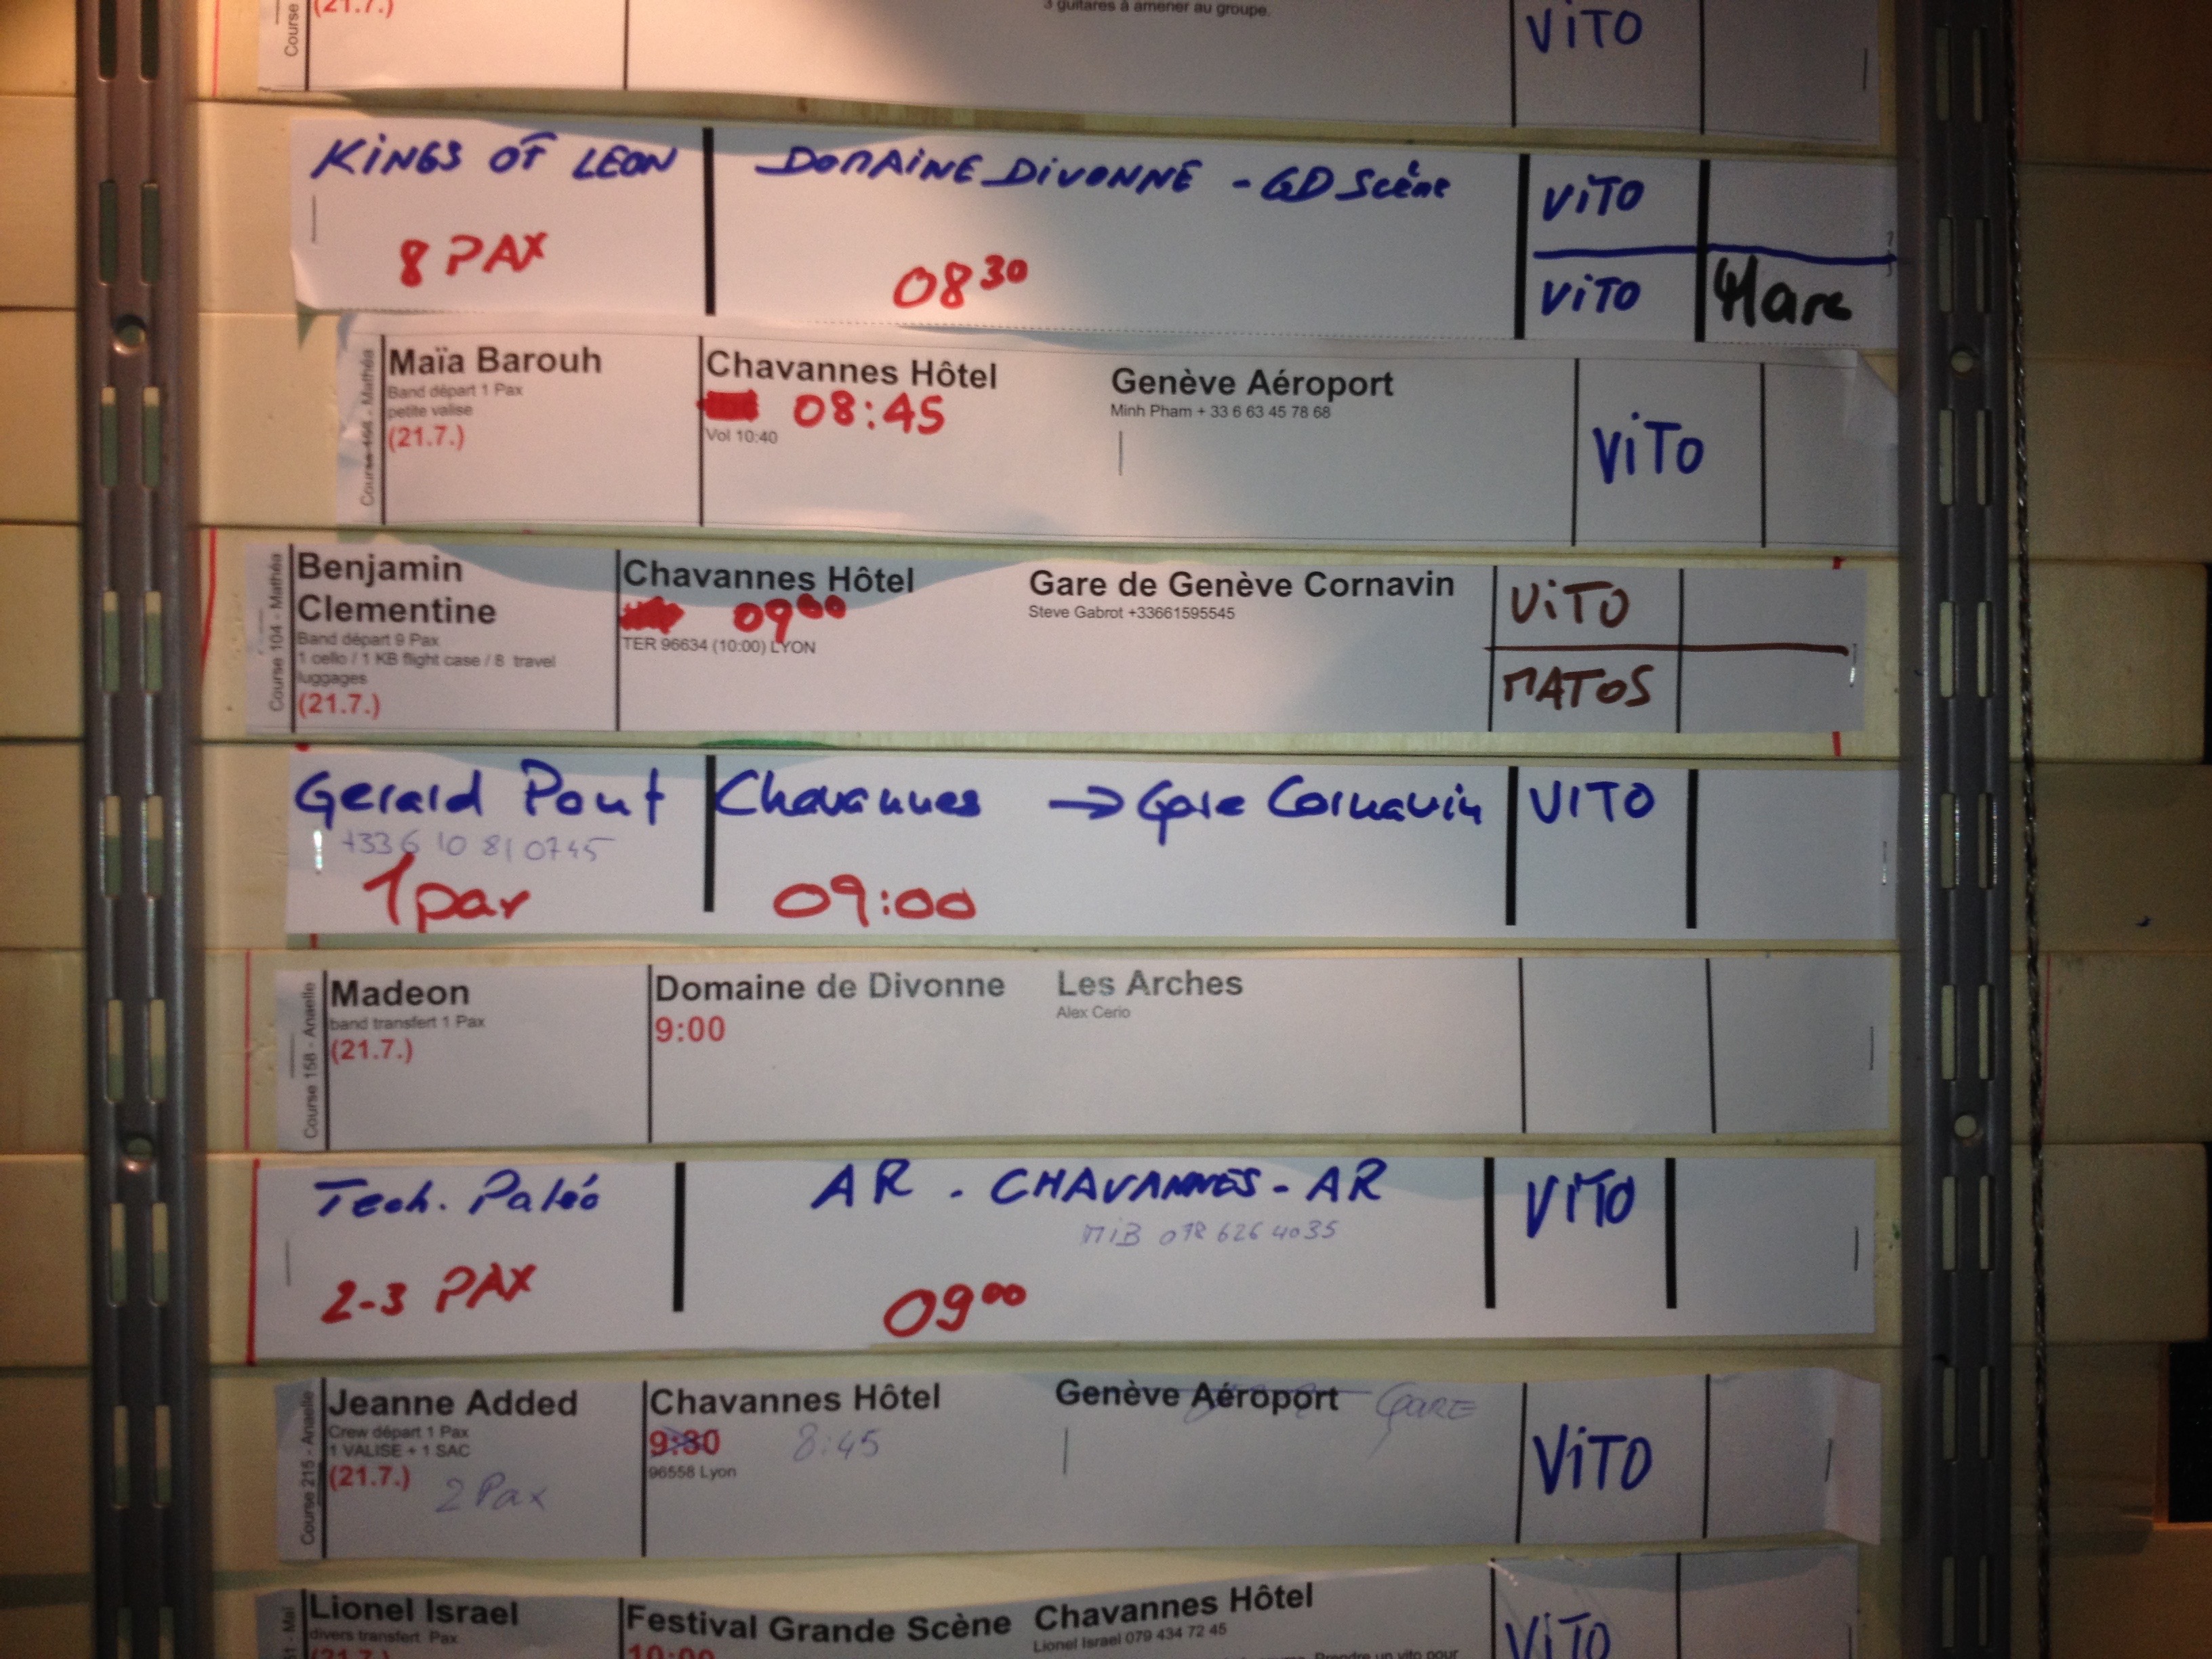 Course
(21.7.)
3 guitares à amener au groupe.
ViTO
KiNGS OF LEON
DOMAINE DIVONNE - GD Scène
ViTO
8 PAX
08 30
ViTO
Marc
Mathéa
Maïa Barouh
Band départ 1 Pax
petite valise
(21.7.)
Chavannes Hôtel
08:45
Vol 10:40
Genève Aéroport
Minh Pham + 33 6 63 45 78 68
ViTO
Course 104 - Mathéa
Benjamin
Clementine
Band départ 9 Pax
1 cello / 1 KB flight case / 8 travel
luggages
(21.7.)
Chavannes Hôtel
09 00
TER 96634 (10:00) LYON
Gare de Genève Cornavin
Steve Gabrot +33661595545
ViTO
MATOS
Gerald Pont
+33 6 10 81 07 45
1 pax
Chavannes → Gare Cornavin
09:00
VITO
Course 158 - Anaelle
Madeon
band transfert 1 Pax
(21.7.)
Domaine de Divonne
9:00
Les Arches
Alex Cerio
Tech. Paléo
2-3 PAX
AR - CHAVANNES - AR
MiB 078 626 4035
09 00
ViTO
Course 215 - Anaelle
Jeanne Added
Crew départ 1 Pax
1 VALISE + 1 SAC
(21.7.)
2 Pax
Chavannes Hôtel
9:30 8:45
96558 Lyon
Genève Aéroport GARE
ViTO
Lionel Israel
divers transfert Pax
(21.7.)
Festival Grande Scène
10:00
Chavannes Hôtel
Lionel Israel 079 434 72 45
Prendre un vito pour
ViTO